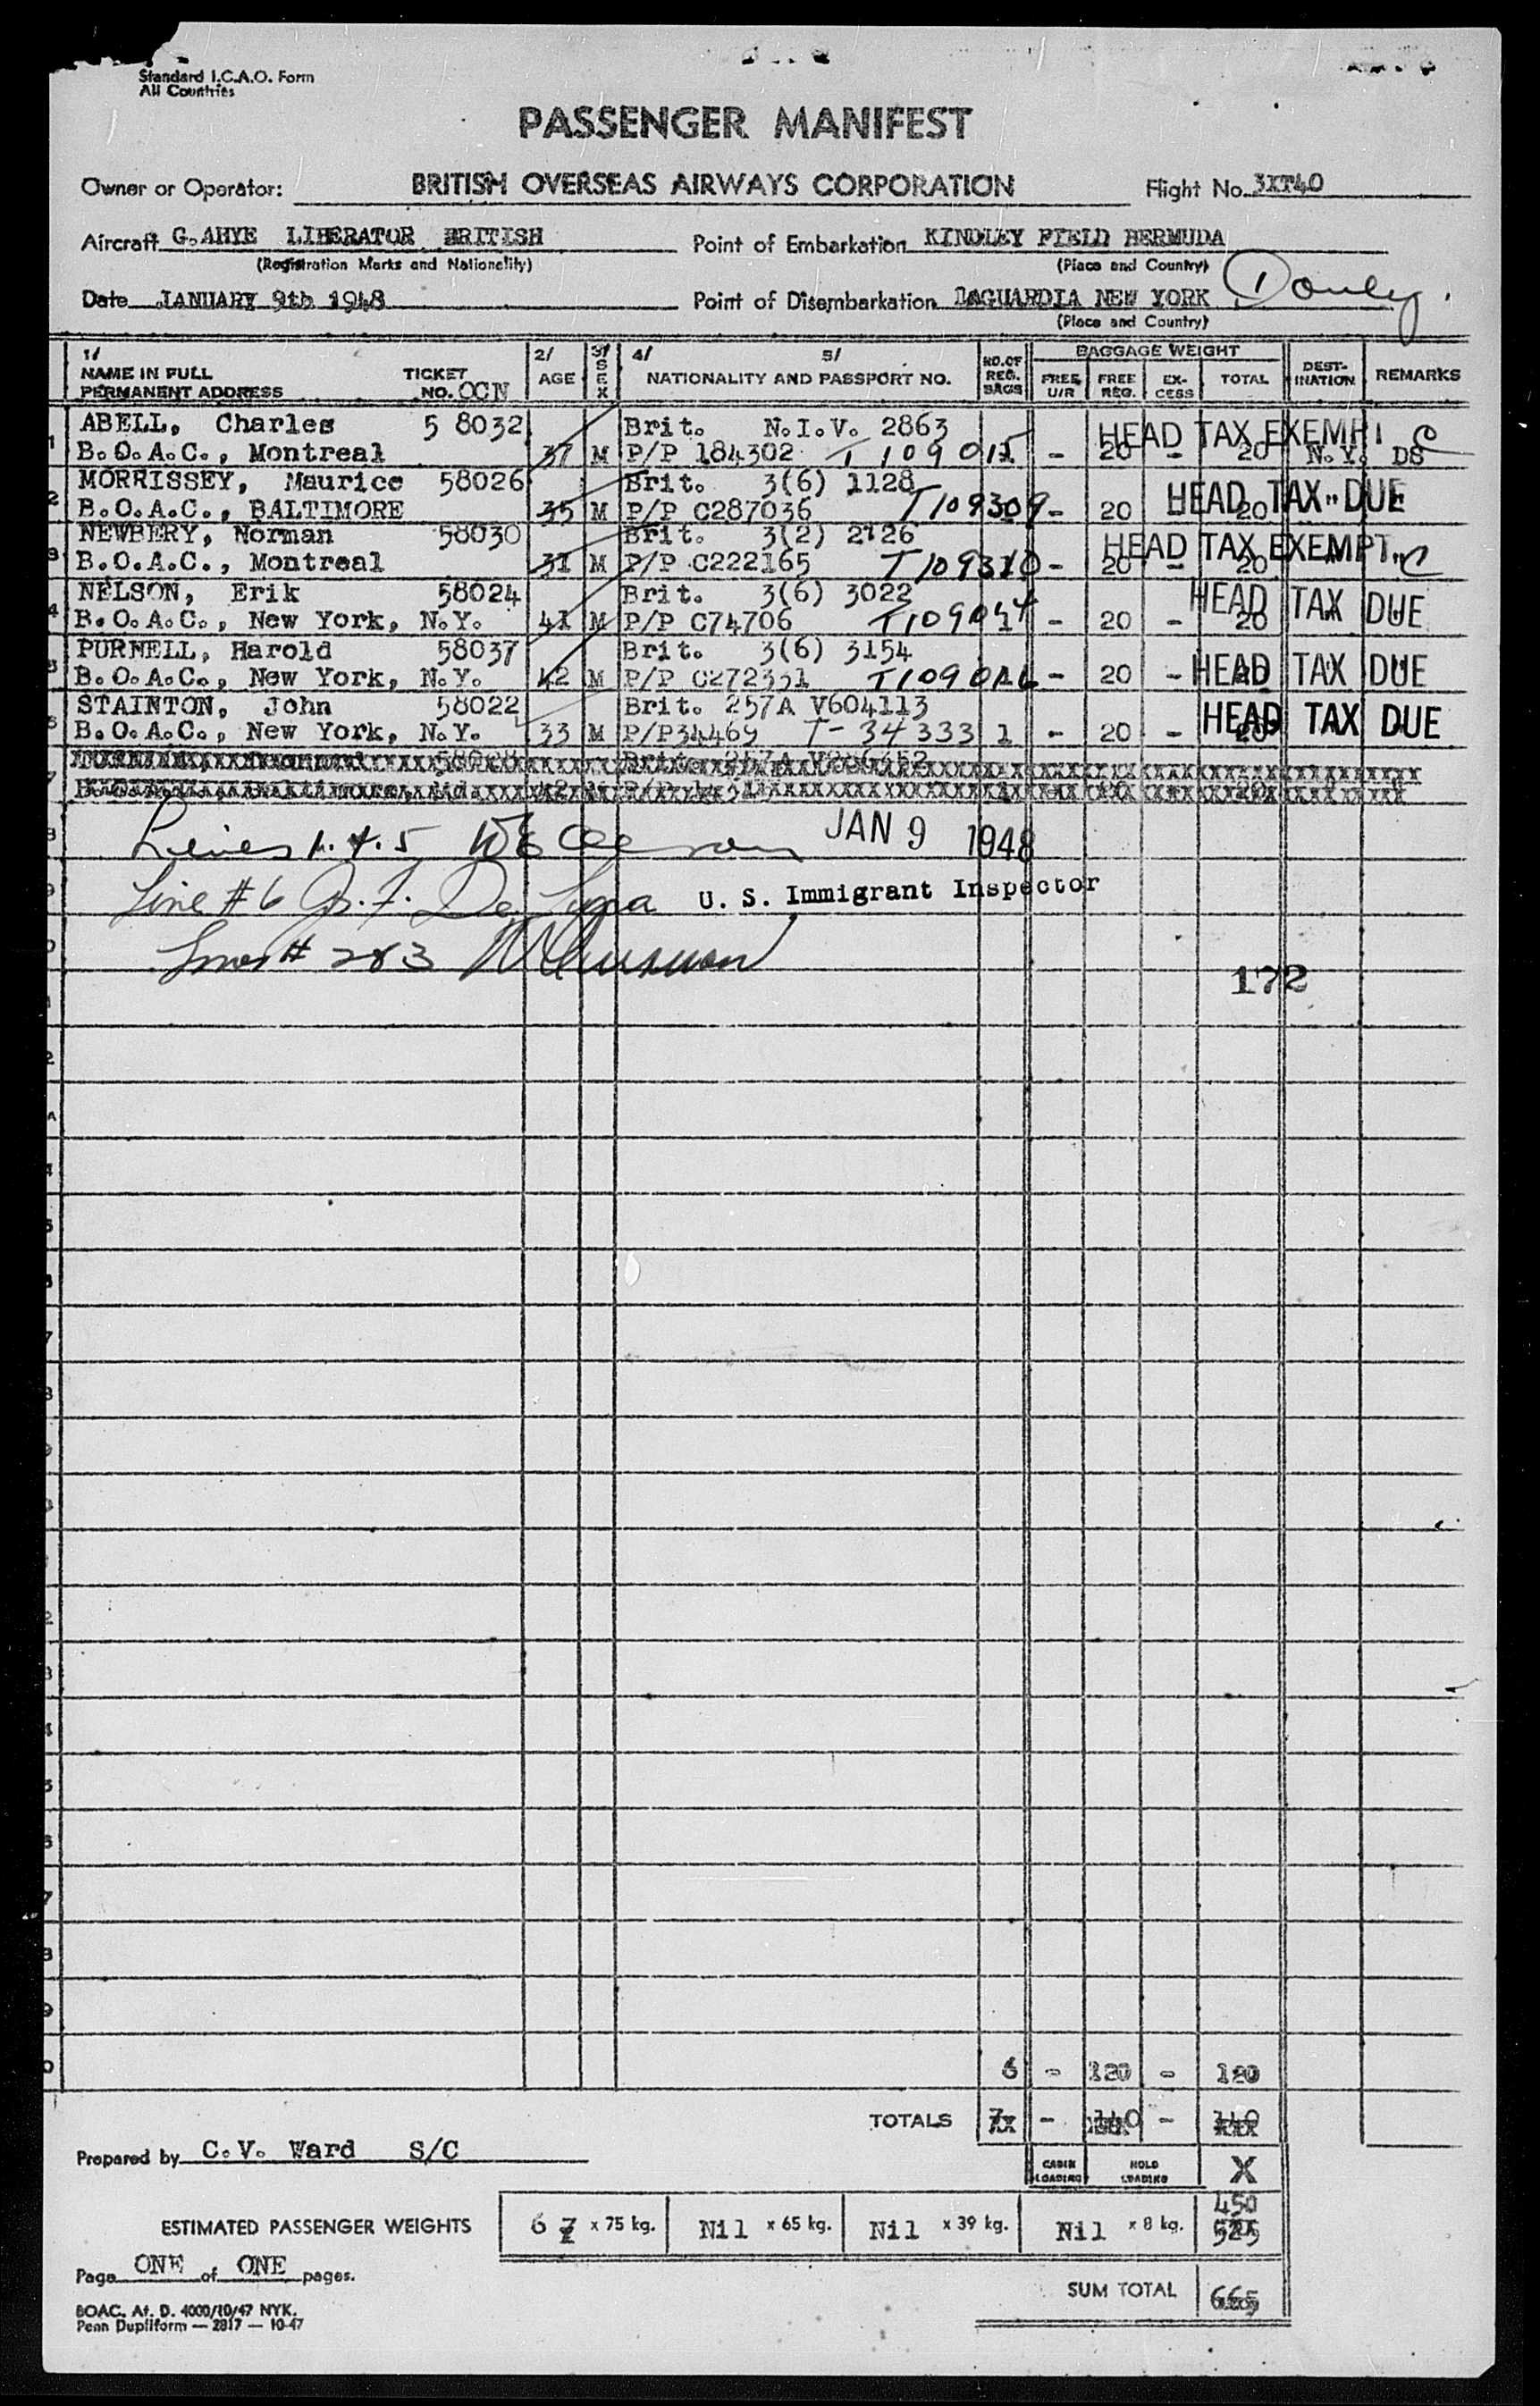 Standard I.C.A.O. Form
All Countries
PASSENGER MANIFEST
Owner or Operator: BRITISH OVERSEAS AIRWAYS CORPORATION Flight No. 3XT40
Aircraft G.AHYE LIBERATOR BRITISH Point of Embarkation KINDLEY FIELD BERMUDA
(Registration Marks and Nationality) (Place and Country)
Date JANUARY 9th 1948 Point of Disembarkation LAGUARDIA NEW YORK
(Place and Country)
1/ NAME IN FULL PERMANENT ADDRESS TICKET NO. OCN 2/ AGE 3/ SEX 4/ 5/ NATIONALITY AND PASSPORT NO. NO. OF REG. BAGS BAGGAGE WEIGHT FREE U/R FREE REG. EX-CESS TOTAL DEST-INATION REMARKS
ABELL, Charles 5 8032 Brit. N.I.V. 2863 HEAD TAX EXEMPT C
1 B.O.A.C., Montreal 37 M P/P 184302 - 20 - 20 N.Y. DS
MORRISSEY, Maurice 58026 Brit. 3(6) 1128 HEAD TAX DUE
2 B.O.A.C., BALTIMORE 35 M P/P C287036 T109309 - 20 20 "
NEWBERY, Norman 58030 Brit. 3(2) 2726 HEAD TAX EXEMPT C
3 B.O.A.C., Montreal 31 M P/P C222165 T109310 - 20 - 20 "
NELSON, Erik 58024 Brit. 3(6) 3022 HEAD TAX DUE
4 B.O.A.C., New York, N.Y. 41 M P/P C74706 - 20 - 20
PURNELL, Harold 58037 Brit. 3(6) 3154
5 B.O.A.C., New York, N.Y. 42 M P/P C272351 - 20 - HEAD TAX DUE
STAINTON, John 58022 Brit. 257A V604113 HEAD TAX DUE
6 B.O.A.C., New York, N.Y. 33 M P/P34469 T-34333 1 - 20 - 20
7
8 Lines 1.4.5 JAN 9 1948
9 Line #6 U. S. Immigrant Inspector
Lines # 2&3
172
6 - 120 - 120
TOTALS 7 - 140 - 140
Prepared by C.V. Ward S/C CABIN LOADING HOLD LOADING X
450
ESTIMATED PASSENGER WEIGHTS 6 7 x 75 kg. Nil x 65 kg. Nil x 39 kg. Nil x 8 kg. 525
Page ONE of ONE pages.
SUM TOTAL 665
BOAC. At. D. 4000/10/47 NYK.
Penn Dupliform — 2817 — 10-47